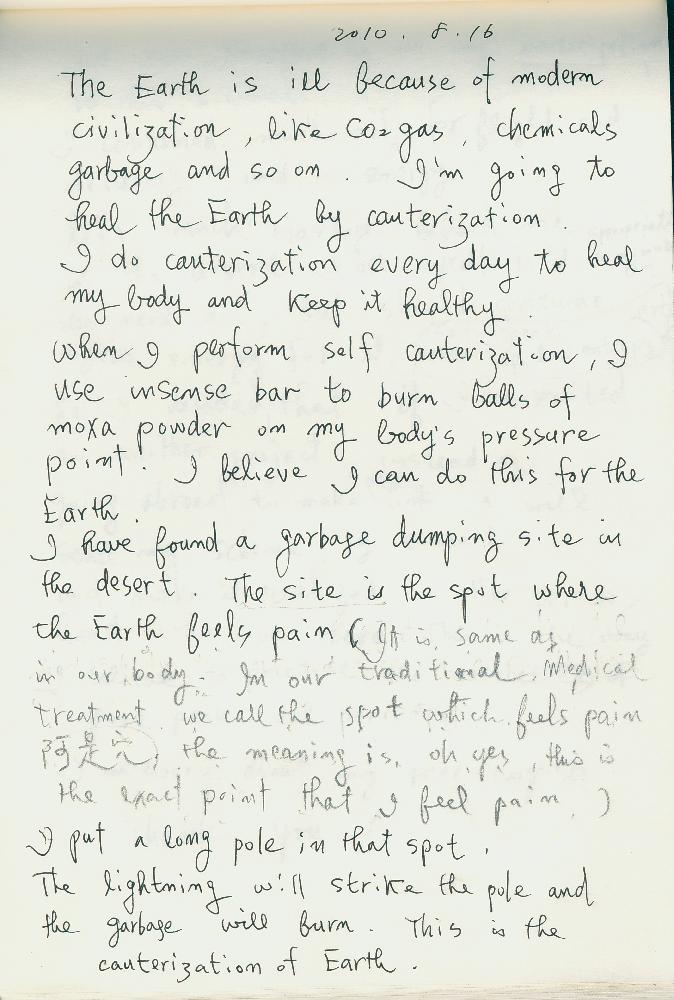 2010. 8. 16
The Earth is ill because of modern
civilization, like CO2 gas, chemicals
garbage and so on. I'm going to
heal the Earth by cauterization.
I do cauterization every day to heal
my body and keep it healthy.
When I perform self cauterization, I
use insense bar to burn balls of
moxa powder on my body's pressure
point. I believe I can do this for the
Earth.
I have found a garbage dumping site in
the desert. The site is the spot where
the Earth feels pain (It is same as
in our body. In our traditional Medical
treatment we call the spot which feels pain
阿是穴, the meaning is, oh yes, this is
the exact point that I feel pain.)
I put a long pole in that spot.
The lightning will strike the pole and
the garbage will burn. This is the
cauterization of Earth.